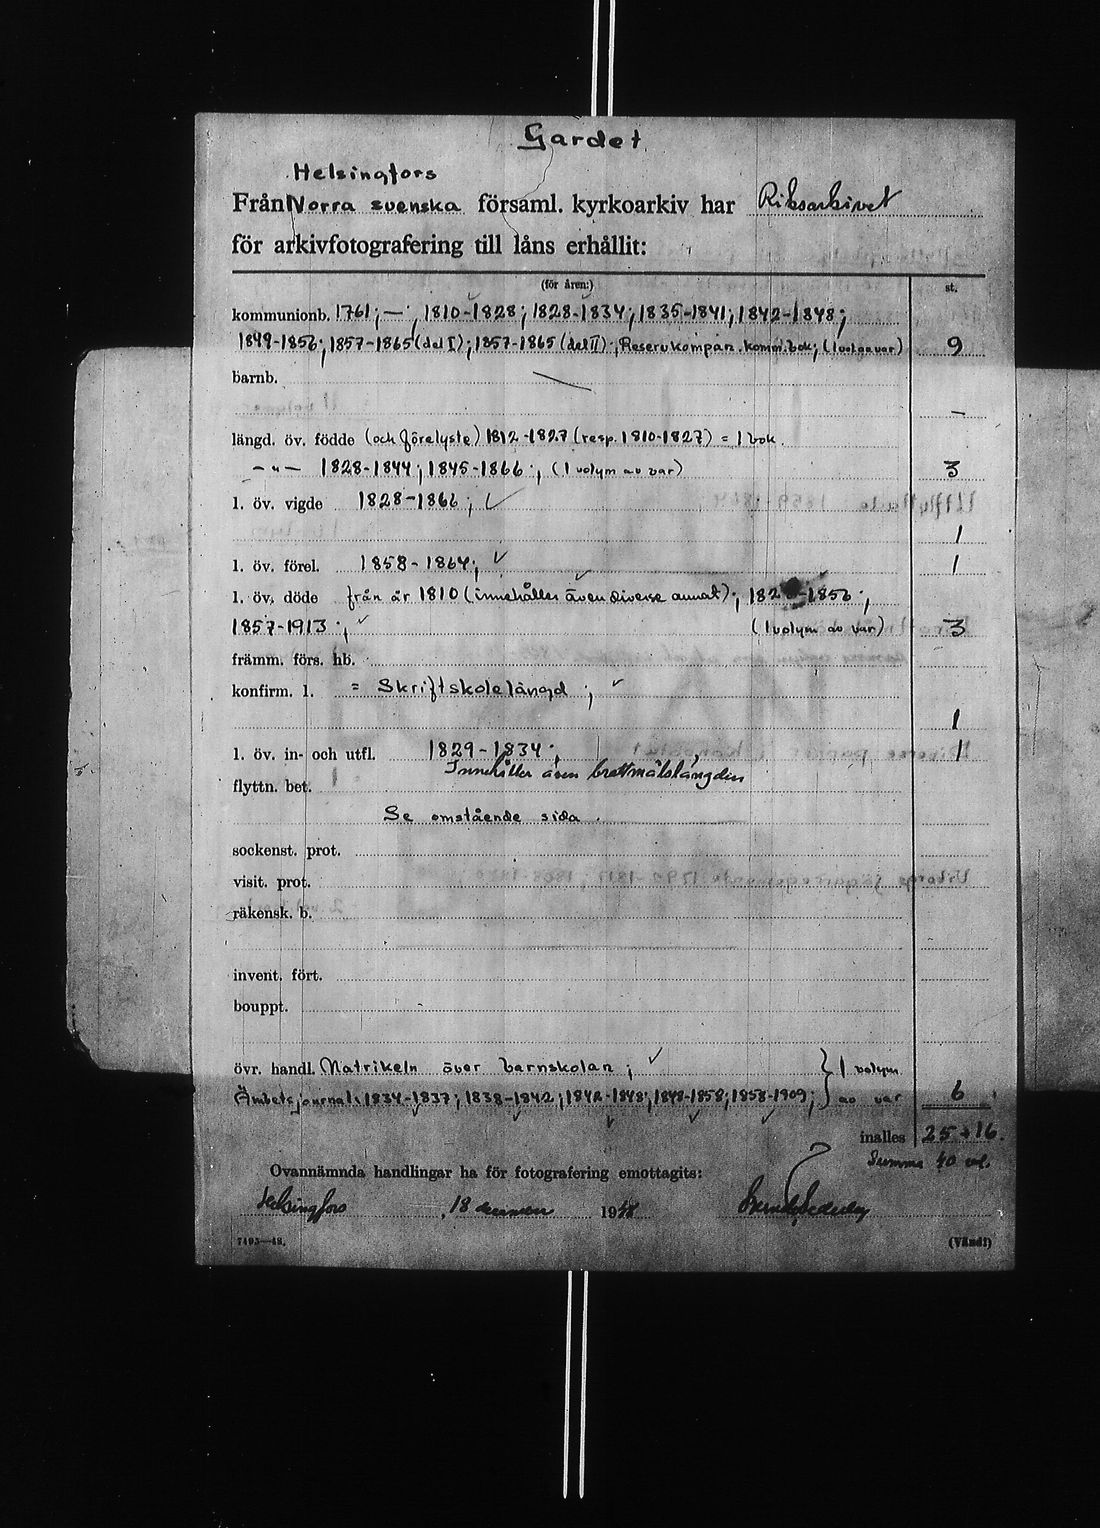 Gardet
Helsingfors
Från Norra svenska församl. kyrkoarkiv har Riksarkivet
för arkivfotografering till låns erhållit:
(för åren:) st.
kommunionb. 1761; — ; 1810-1828; 1828-1834; 1835-1841; 1842-1848;
1849-1856; 1857-1865 (del I); 1857-1865 (del II); Reservkompan. komm.bok; (1 vol. av var) 9
barnb.
—
längd. öv. födde (och förelyste) 1812-1827 (resp. 1810-1827) = 1 bok.
—"— 1828-1844; 1845-1866; (1 volym av var) 3
l. öv. vigde 1828-1866;
1
l. öv. förel. 1858-1864; 1
l. öv. döde från år 1810 (innehåller även diverse annat); 182 -1856;
1857-1913; (1 volym av var) 3
främm. förs. hb.
konfirm. l. = Skriftskolelängd;
1
l. öv. in- och utfl. 1829-1834; 1
Innehåller även brottmålslängden
flyttn. bet.
Se omstående sida.
sockenst. prot.
visit. prot.
räkensk. b.
invent. fört.
bouppt.
övr. handl. Matrikeln över barnskolan; } 1 volym
Ämbetsjournal: 1834-1837; 1838-1842; 1842-1848; 1848-1858; 1858-1909; } av var 6
inalles 25 + 16.
Summa 40 vol.
Ovannämnda handlingar ha för fotografering emottagits:
Helsingfors, 18 december 1948
7495—48. (Vänd!)